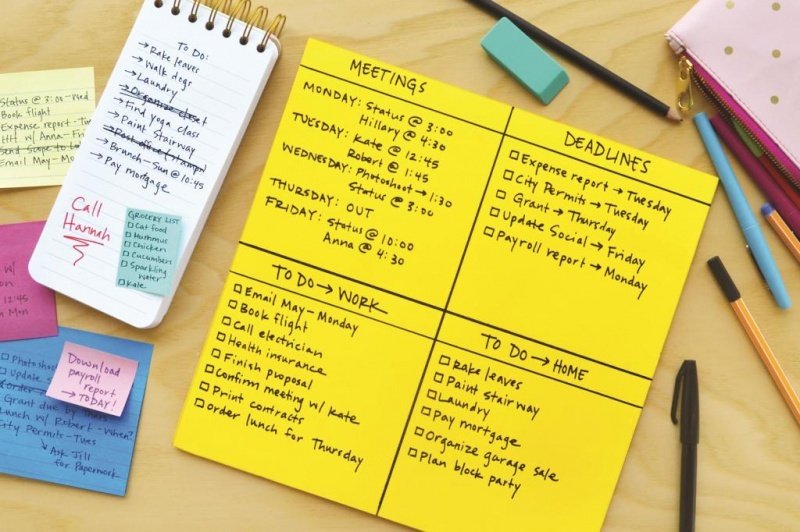 Status @ 3:00-Wed
Book flight
Expense report-Tu
HH w/ Anna-Fri
Send Scope to
Email May-Mon
To Do:
→Rake leaves
→Walk dogs
→Laundry
→Organize closet
→Find yoga class
→Paint Stairway
→Post office (stamps)
→Brunch-Sun @ 10:45
→Pay mortgage
Call
Hannah
GROCERY LIST
Cat food
Hummus
Chicken
Cucumbers
Sparkling
Water
Kale
w/
12:45
Mon
Photosho
Update
Order
Grant due by
Lunch w/ Robert-When?
City Permits-Tues
↳ Ask Jill
for Paperwork
Download
payroll
report
→TODAY!
MEETINGS
MONDAY: Status @ 3:00
Hillary @ 4:30
TUESDAY: Kate @ 12:45
Robert @ 1:45
WEDNESDAY: Photoshoot→1:30
Status @ 3:00
THURSDAY: OUT
FRIDAY: Status @ 10:00
Anna @ 4:30
DEADLINES
Expense report→Tuesday
City Permits→Tuesday
Grant→Thursday
Update Social→Friday
Payroll report→Monday
TO DO→WORK
Email May-Monday
Book flight
Call electrician
Health insurance
Finish proposal
Confirm meeting w/ Kate
Print contracts
Order lunch for Thursday
TO DO→HOME
Rake leaves
Paint Stairway
Laundry
Pay mortgage
Organize garage sale
Plan block party